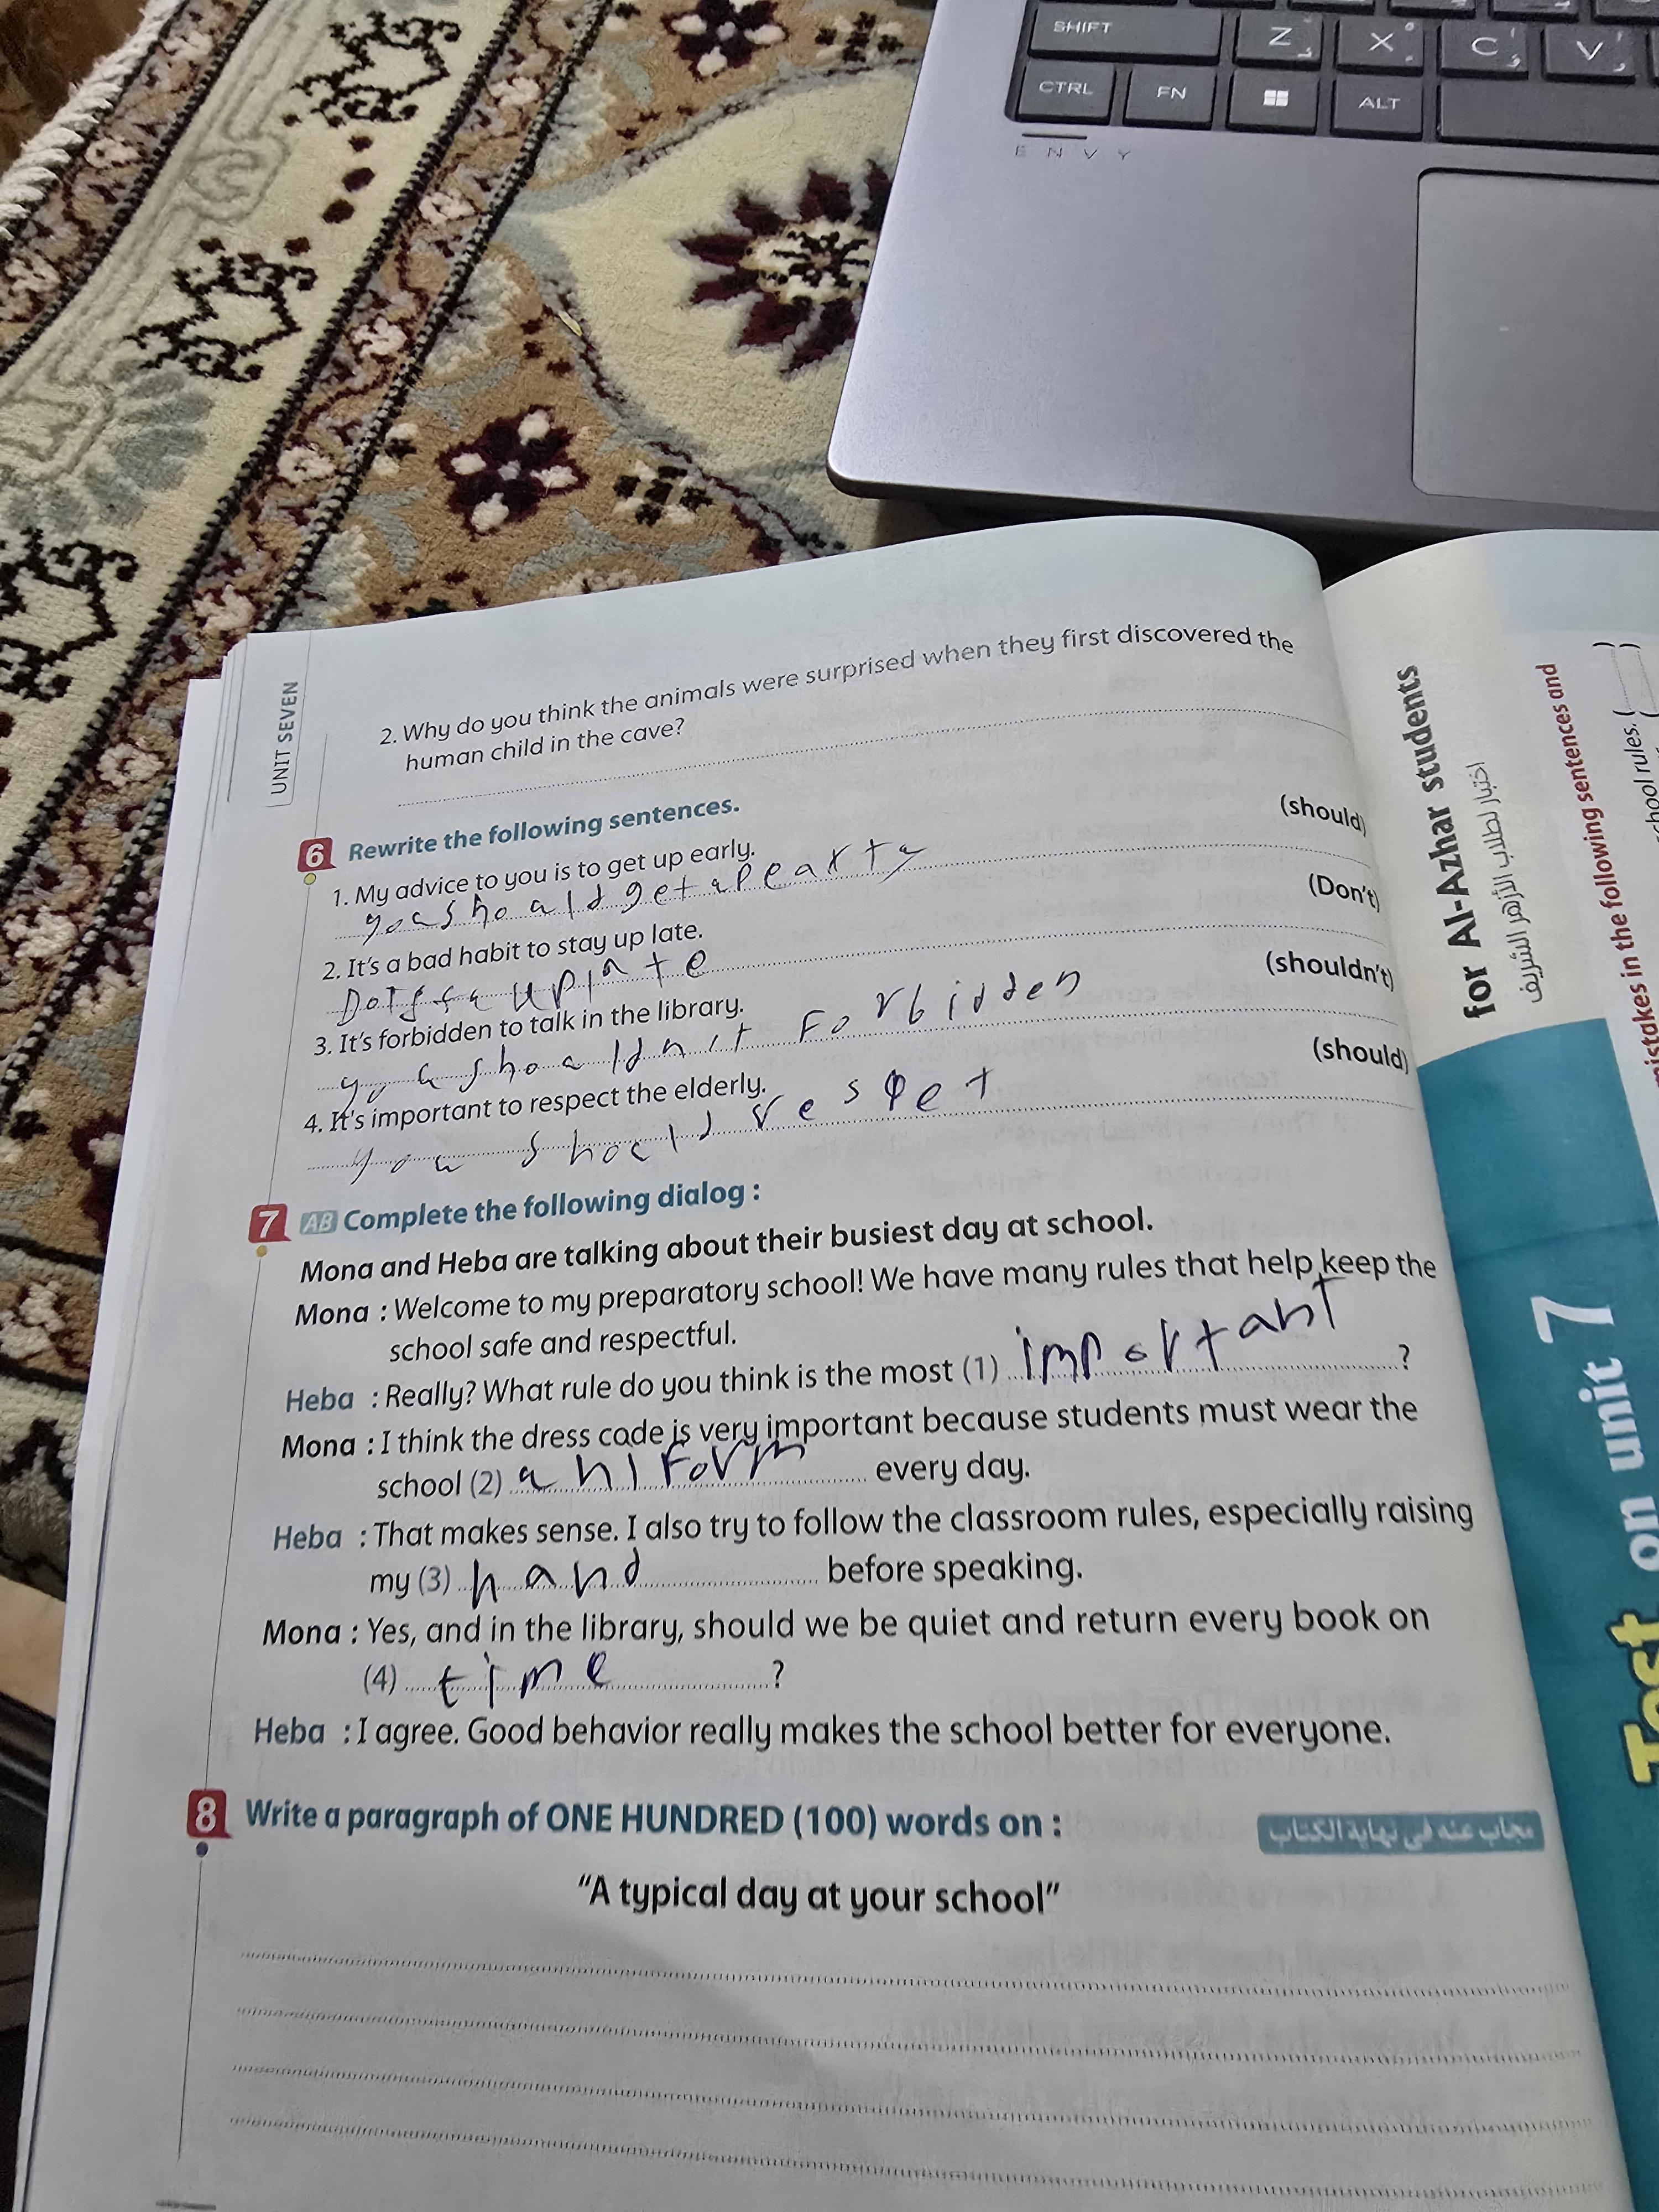 SHIFT
Z
X
C
V
CTRL
FN
ALT
ENVY
UNIT SEVEN
2. Why do you think the animals were surprised when they first discovered the
human child in the cave?
6 Rewrite the following sentences.
1. My advice to you is to get up early. (should)
2. It's a bad habit to stay up late. (Don't)
up late
3. It's forbidden to talk in the library. (shouldn't)
forbidden
4. It's important to respect the elderly. (should)
you should respet
7 AB Complete the following dialog :
Mona and Heba are talking about their busiest day at school.
Mona : Welcome to my preparatory school! We have many rules that help keep the
school safe and respectful.
Heba : Really? What rule do you think is the most (1) important ?
Mona : I think the dress code is very important because students must wear the
school (2) uniform every day.
Heba : That makes sense. I also try to follow the classroom rules, especially raising
my (3) hand before speaking.
Mona : Yes, and in the library, should we be quiet and return every book on
(4) time ?
Heba : I agree. Good behavior really makes the school better for everyone.
8 Write a paragraph of ONE HUNDRED (100) words on :
مجاب عنه فى نهاية الكتاب
"A typical day at your school"
for Al-Azhar students
اختبار لطلاب الأزهر الشريف
Test on unit 7
mistakes in the following sentences and
school rules. ( )